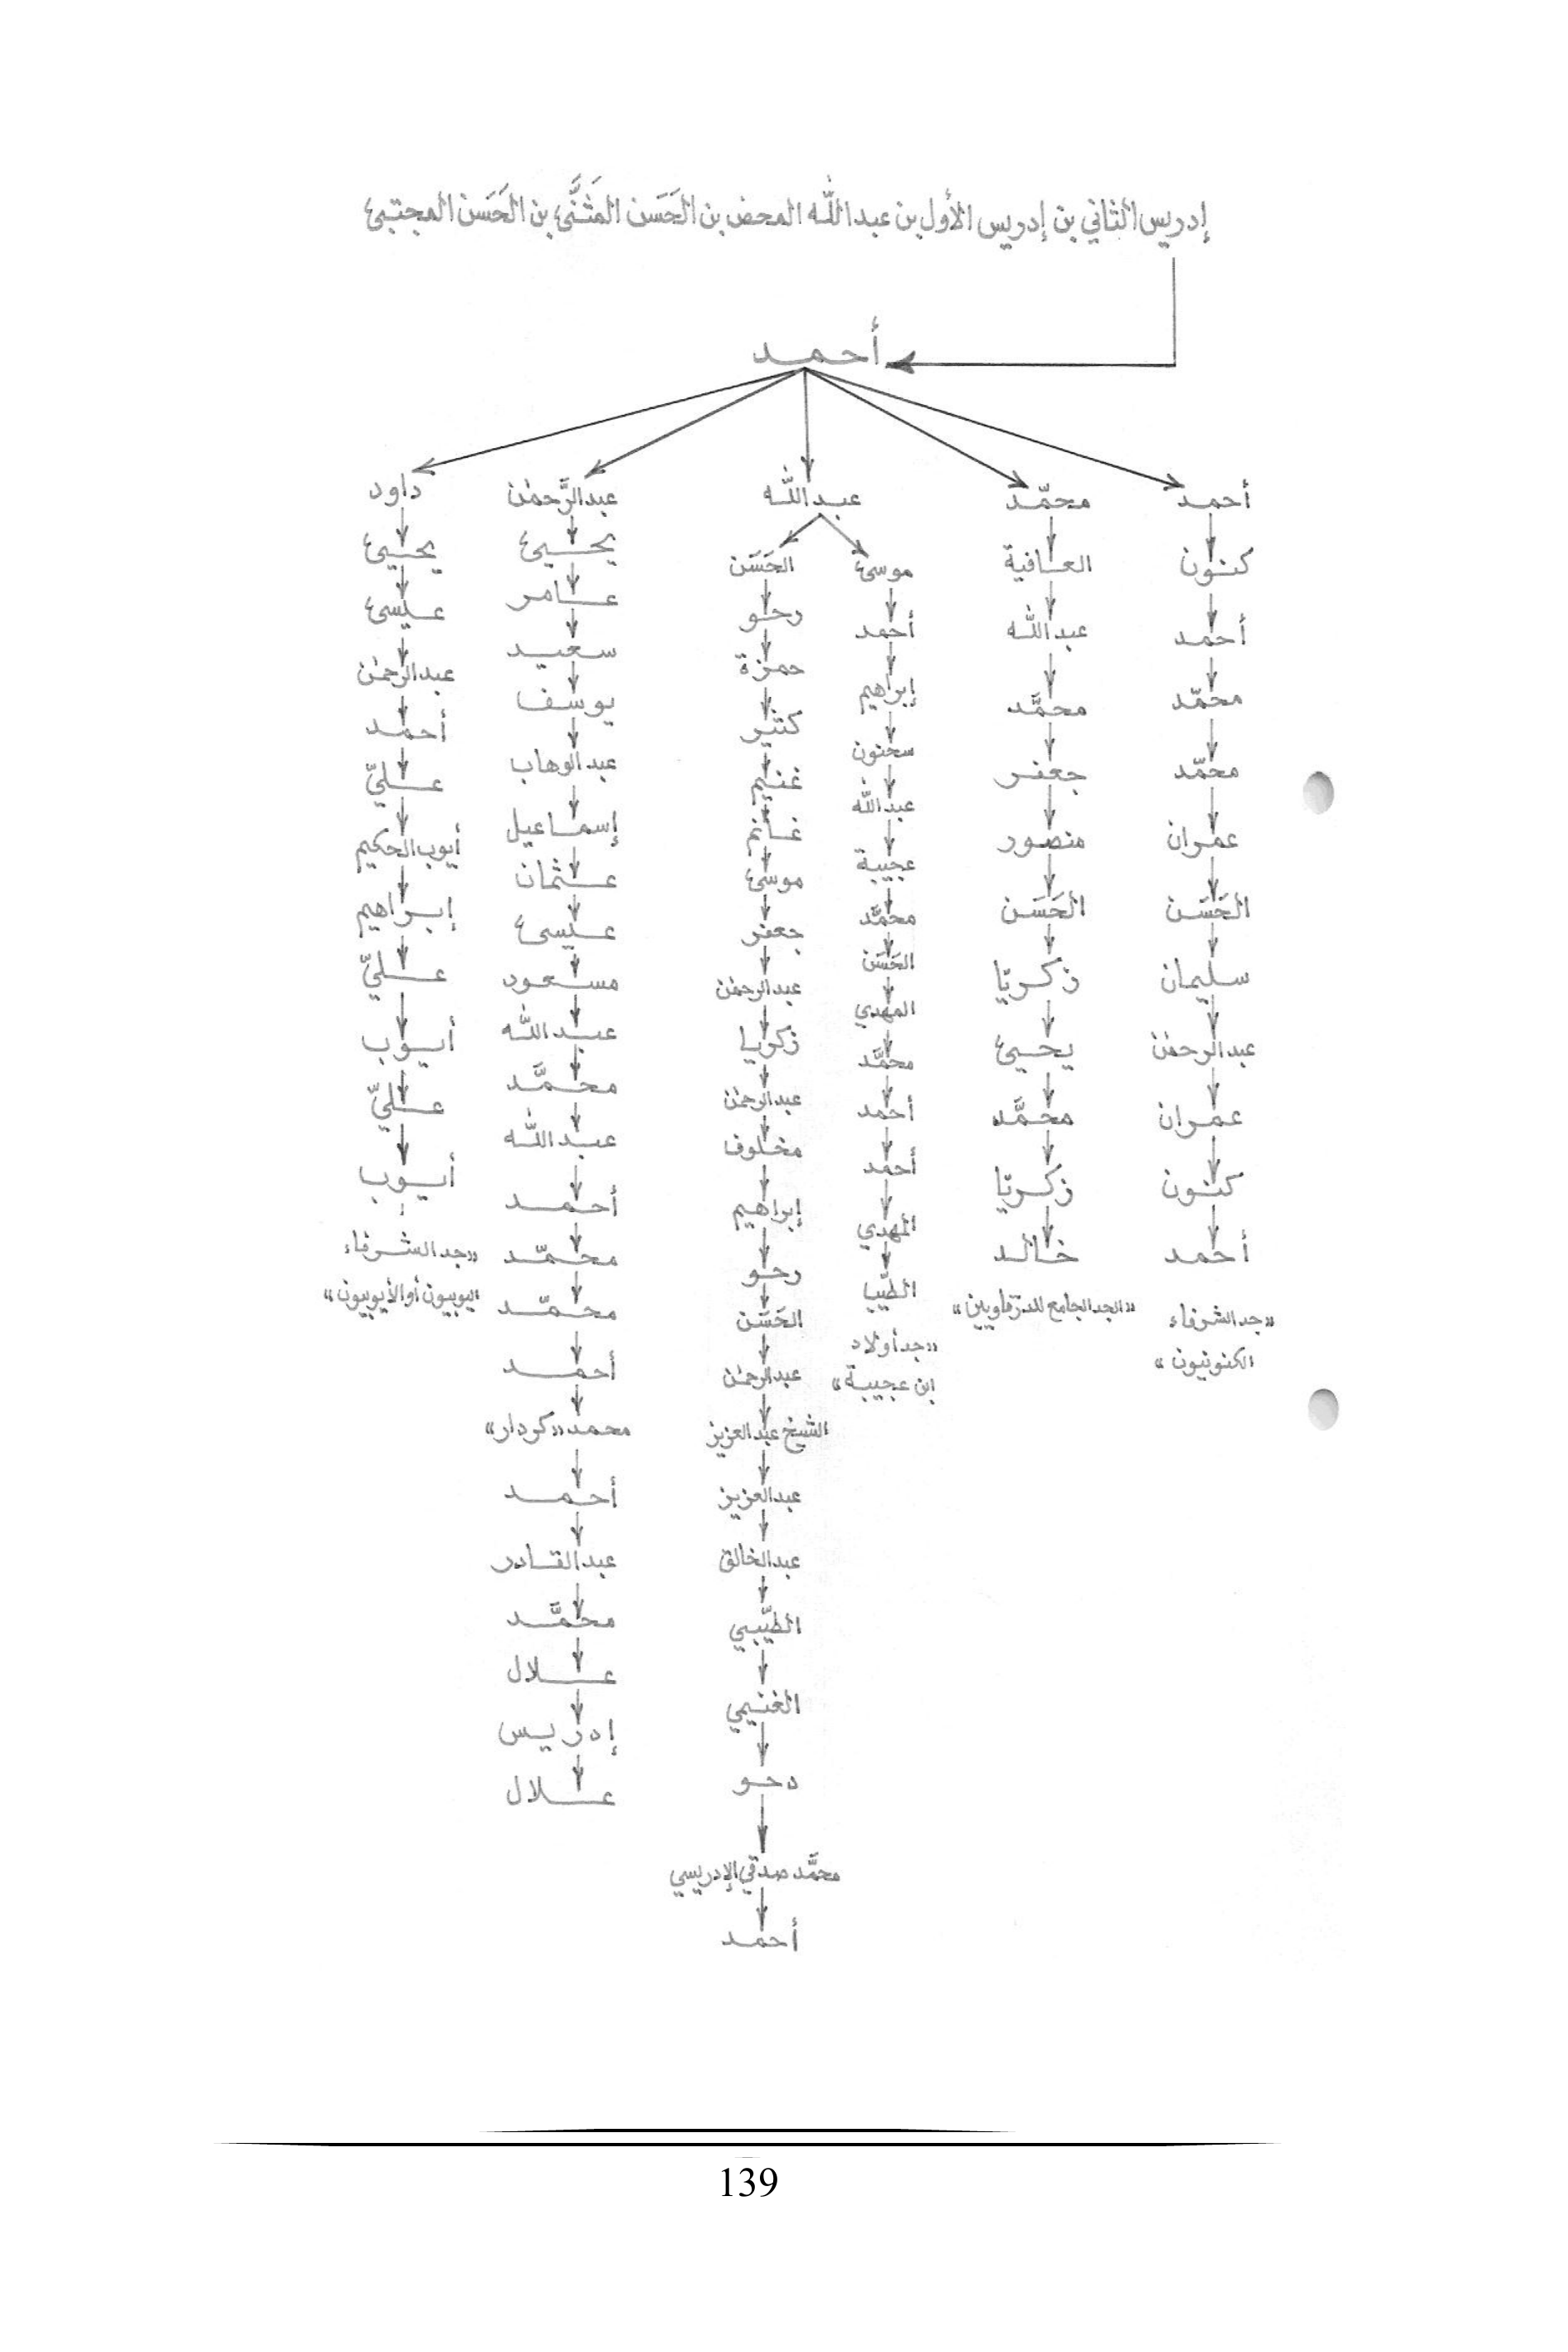 إدريس الثاني بن إدريس الأول بن عبد اللّه المحض بن الحَسَن المَثَنَّى بن الحَسَن المجتبى
أحمد
أحمد
كنون
أحمد
محمّد
محمّد
عمران
الحَسَن
سليمان
عبد الرحمٰن
عمران
كنون
أحمد
«جد الشرفاء
الكنونيون»
محمّد
العافية
عبد اللّٰه
محمَّد
جعفر
منصور
الحَسَن
زكريّا
يحيى
محمَّد
زكريّا
خالد
«الجد الجامع للدرقاويين»
عبد اللّٰه
موسى
أحمد
إبراهيم
سحنون
عبد اللّٰه
عجيبة
محمَّد
الحَسَن
المهدي
محمَّد
أحمد
أحمد
المهدي
الطيّب
«جد أولاد
ابن عجيبة»
الحَسَن
رحو
حمزة
كثير
غنيم
غانم
موسى
جعفر
عبد الرحمٰن
زكريا
عبد الرحمٰن
مخلوف
إبراهيم
رحو
الحَسَن
عبد الرحمٰن
الشيخ عبد العزيز
عبد العزيز
عبد الخالق
الطيّبي
الغنيمي
دحو
محمَّد صدقي الإدريسي
أحمد
عبد الرَّحمٰن
يحيى
عامر
سعيد
يوسف
عبد الوهاب
إسماعيل
عثمان
عيسى
مسعود
عبد اللّٰه
محمَّد
عبد اللّٰه
أحمد
محمّد
محمّد
أحمد
محمد «كردار»
أحمد
عبد القادر
محمَّد
علال
إدريس
علال
داود
يحيى
عيسى
عبد الرحمٰن
أحمد
عليّ
أيوب الحكيم
إبراهيم
عليّ
أيوب
عليّ
أيوب
«جد الشرفاء
اليوبيون أو الأيوبيون»
139